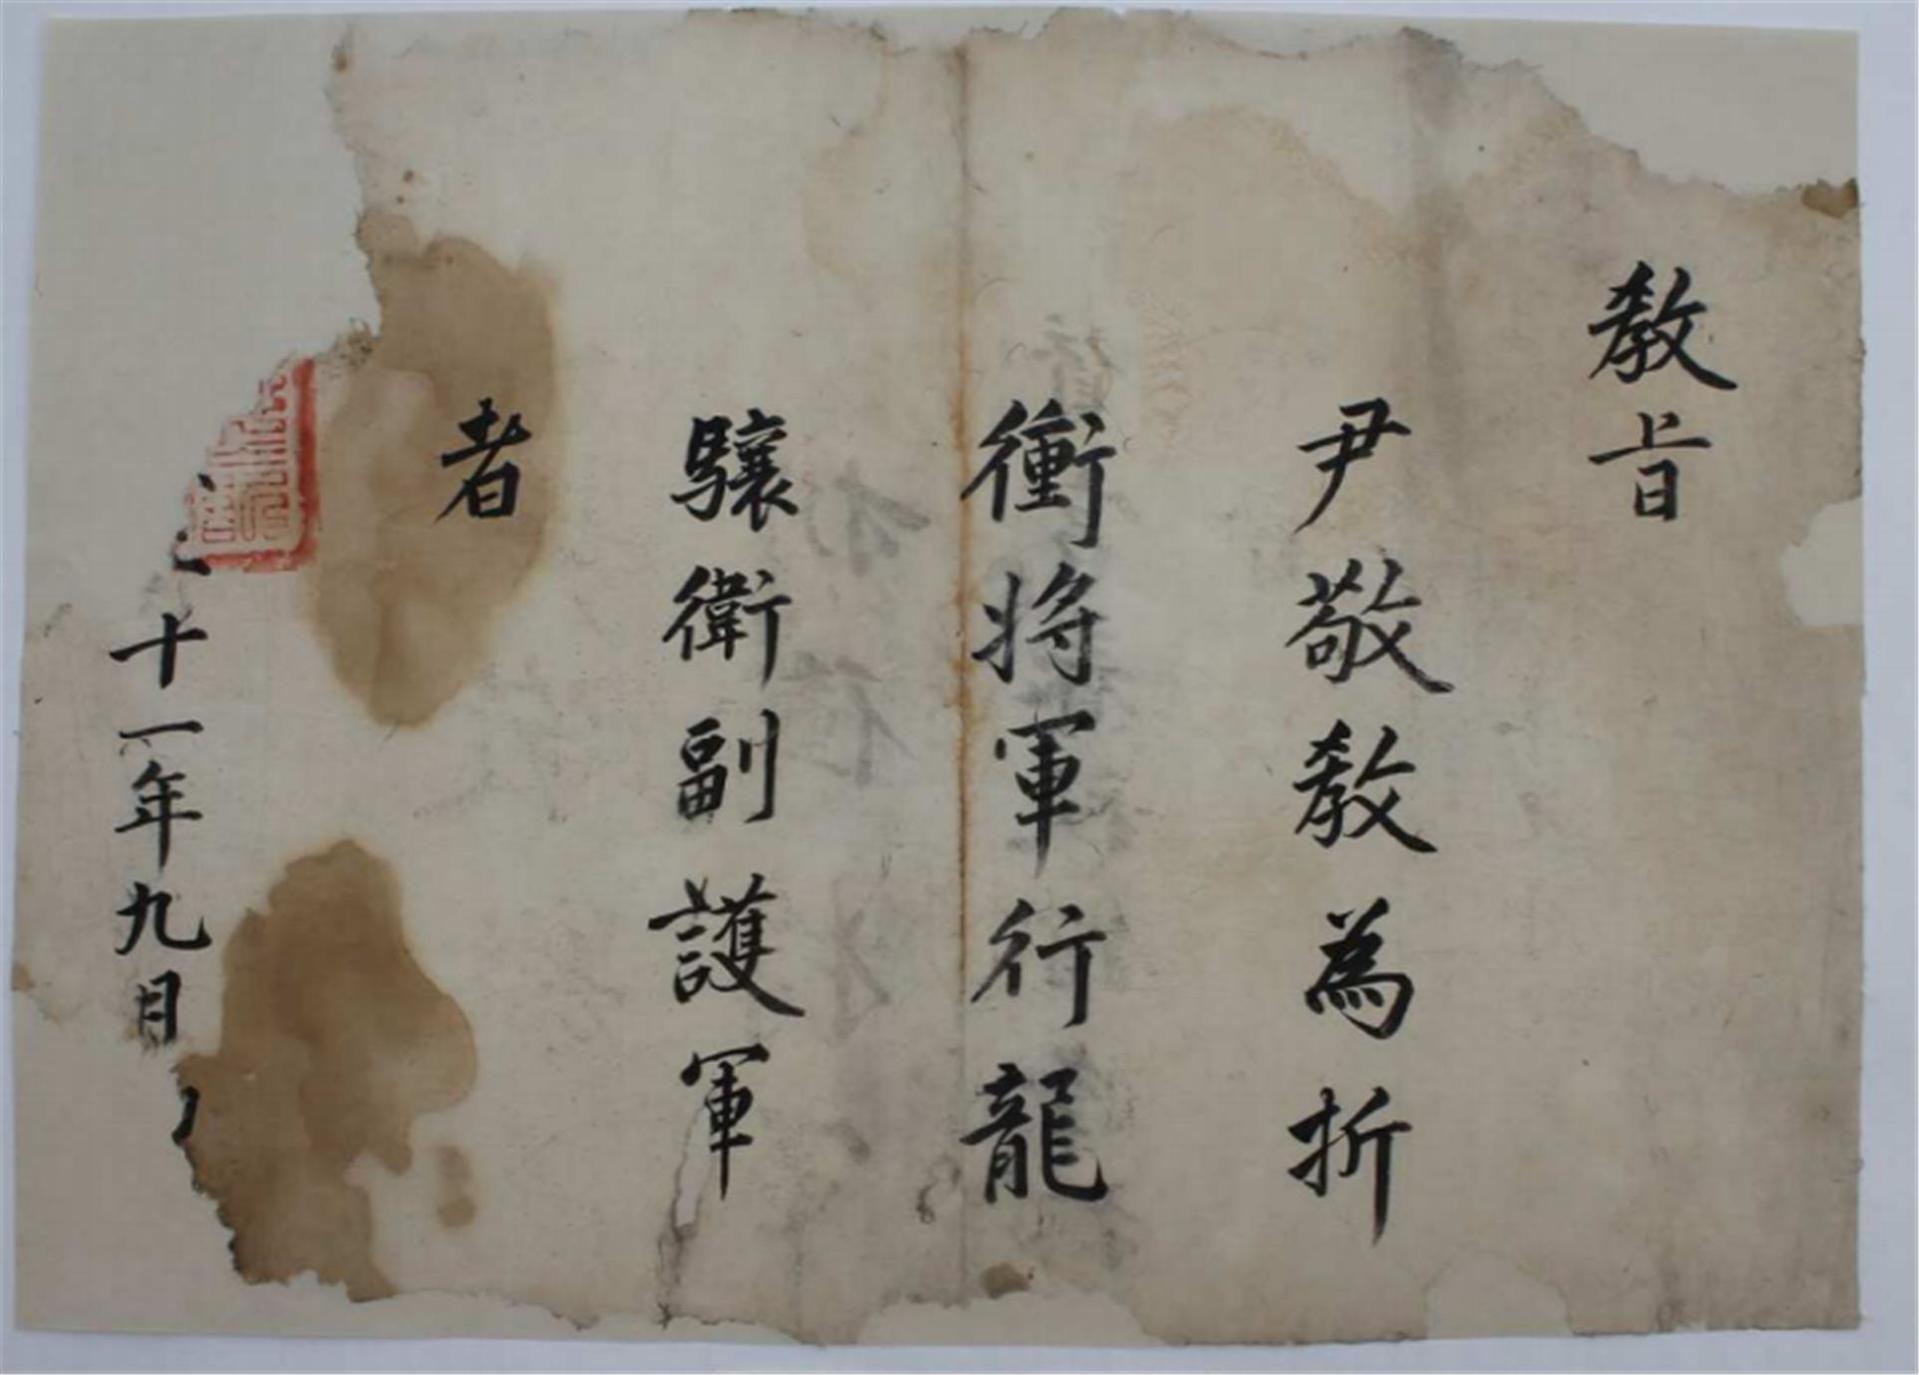 教旨
尹敬教為折
衝將軍行龍
驤衛副護軍
者
十一年九月